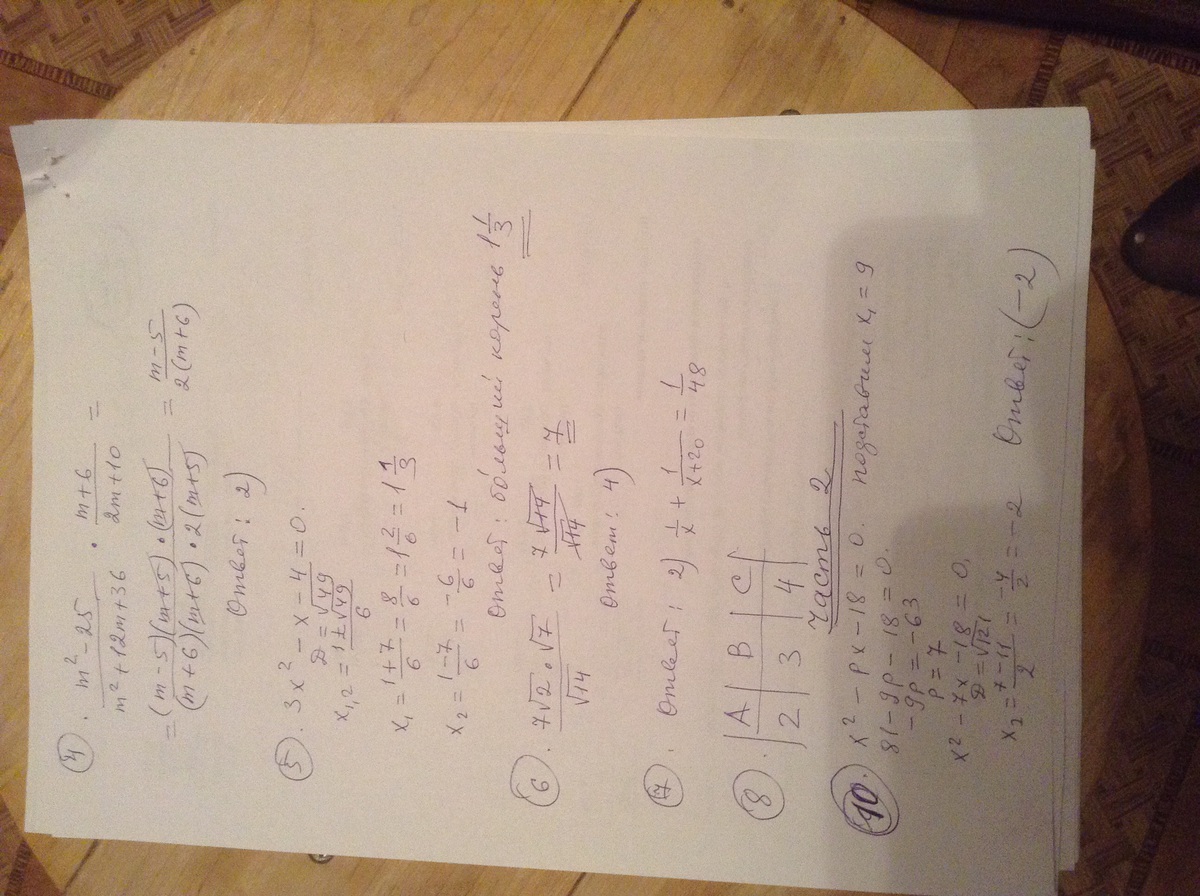 4. (m² − 25)/(m² + 12m + 36) · (m + 6)/(2m + 10) =
= ((m − 5)(m + 5) · (m + 6))/((m + 6)(m + 6) · 2(m + 5)) = (m − 5)/(2(m + 6))
Ответ: 2)
5. 3x² − x − 4 = 0.
D = √49
x₁,₂ = (1 ± √49)/6
x₁ = (1 + 7)/6 = 8/6 = 1 2/6 = 1 1/3
x₂ = (1 − 7)/6 = −6/6 = −1
Ответ: больший корень 1 1/3
6. (7√2 · √7)/√14 = 7√14/√14 = 7
Ответ: 4)
7. Ответ: 2) 1/x + 1/(x + 20) = 1/48
8. | A | B | C |
| 2 | 3 | 4 |
Часть 2
10. x² − px − 18 = 0. подставим x₁ = 9
81 − 9p − 18 = 0.
−9p = −63
p = 7
x² − 7x − 18 = 0.
D = √121
x₂ = (7 − 11)/2 = −4/2 = −2 Ответ: (−2)